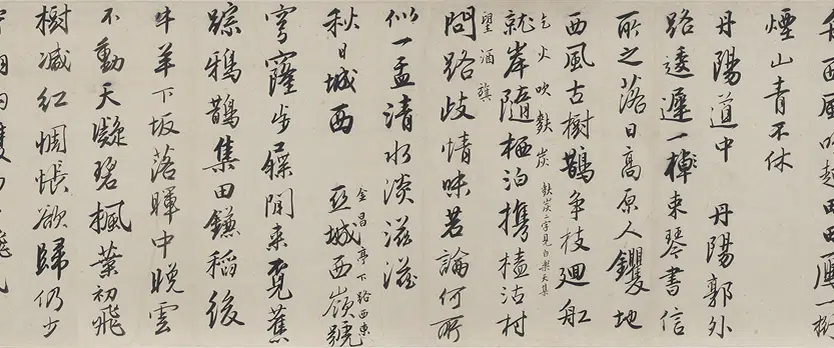 西風吹起田田
煙山青不休
丹陽道中 丹陽郭外
路逶遲一棹束琴書信
所之落日高原人钁地
西風古樹鵲爭枝迴舡
乞火吹麩炭 麩炭二字見白樂天集
就岸隨栖泊攜榼沽村
望酒旗
問路歧情味若論何所
似一盂清水淡滋滋
金昌亭下路西東
秋日城西 亞城西嶺號
穹窿步屧閒來覓蕉
踪鴉鵲集田鎌稻後
牛羊下坂落暉中晚雲
不動天凝碧楓葉初飛
樹減紅惆悵欲歸仍少